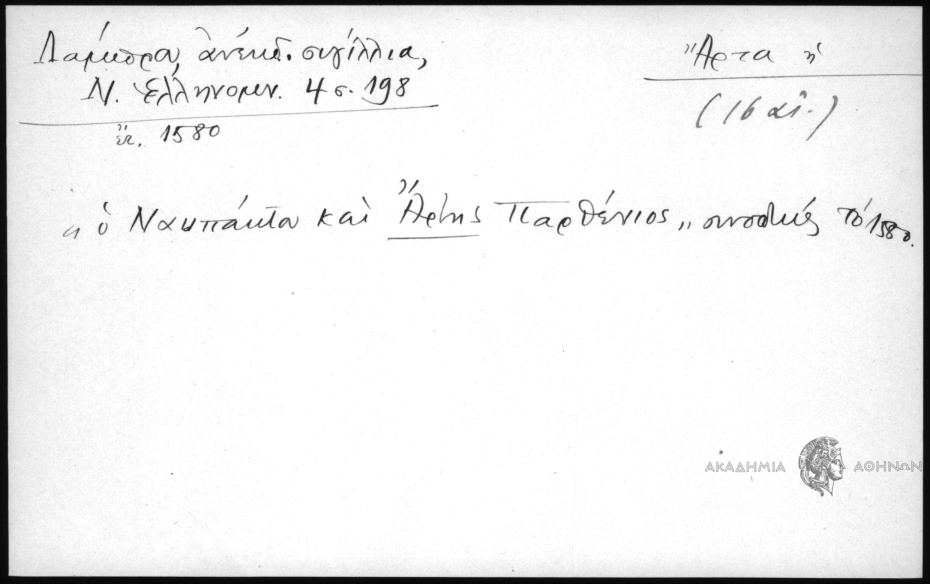 Λάμπρου, ἀνέκδ. σιγίλλια,
Ν. Ἑλληνομν. 4 σ. 198
ἔτ. 1580
Ἄρτα ἡ
(16 αἰ.)
"ὁ Ναυπάκτου καὶ Ἄρτης Παρθένιος" συνοδικῶς τὸ 1580.
ΑΚΑΔΗΜΙΑ ΑΘΗΝΩΝ